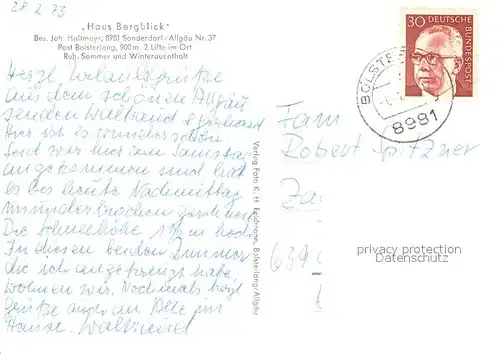 28 2 73
„Haus Bergblick"
Bes. Joh. Haltmayr, 8981 Sonderdorf/Allgäu Nr. 37
Post Bolsterlang, 900m 2 Lifte im Ort
Ruh. Sommer und Winteraufenthalt
Herzl. Urlaubsgrüße
aus dem schönen Allgäu
senden Waltraud &
Hier ist es wunderschön
Seid wir hier am Samstag
angekommen sind hat
es bis heute Nachmittag
ununterbrochen
Die Schneehöhe 1½ m hoch
In diesen beiden Zimmer
die ich angekreuzt habe,
wohnen wir. Nochmals herzl.
Grüße auch an Alle im
Hause. Waltraud
Verlag Foto K. H. Feldmann, Bolsterlang/Allgäu
30 DEUTSCHE BUNDESPOST
BOLSTE
8981
Fam
Robert Spitzner
639
privacy protection
Datenschutz